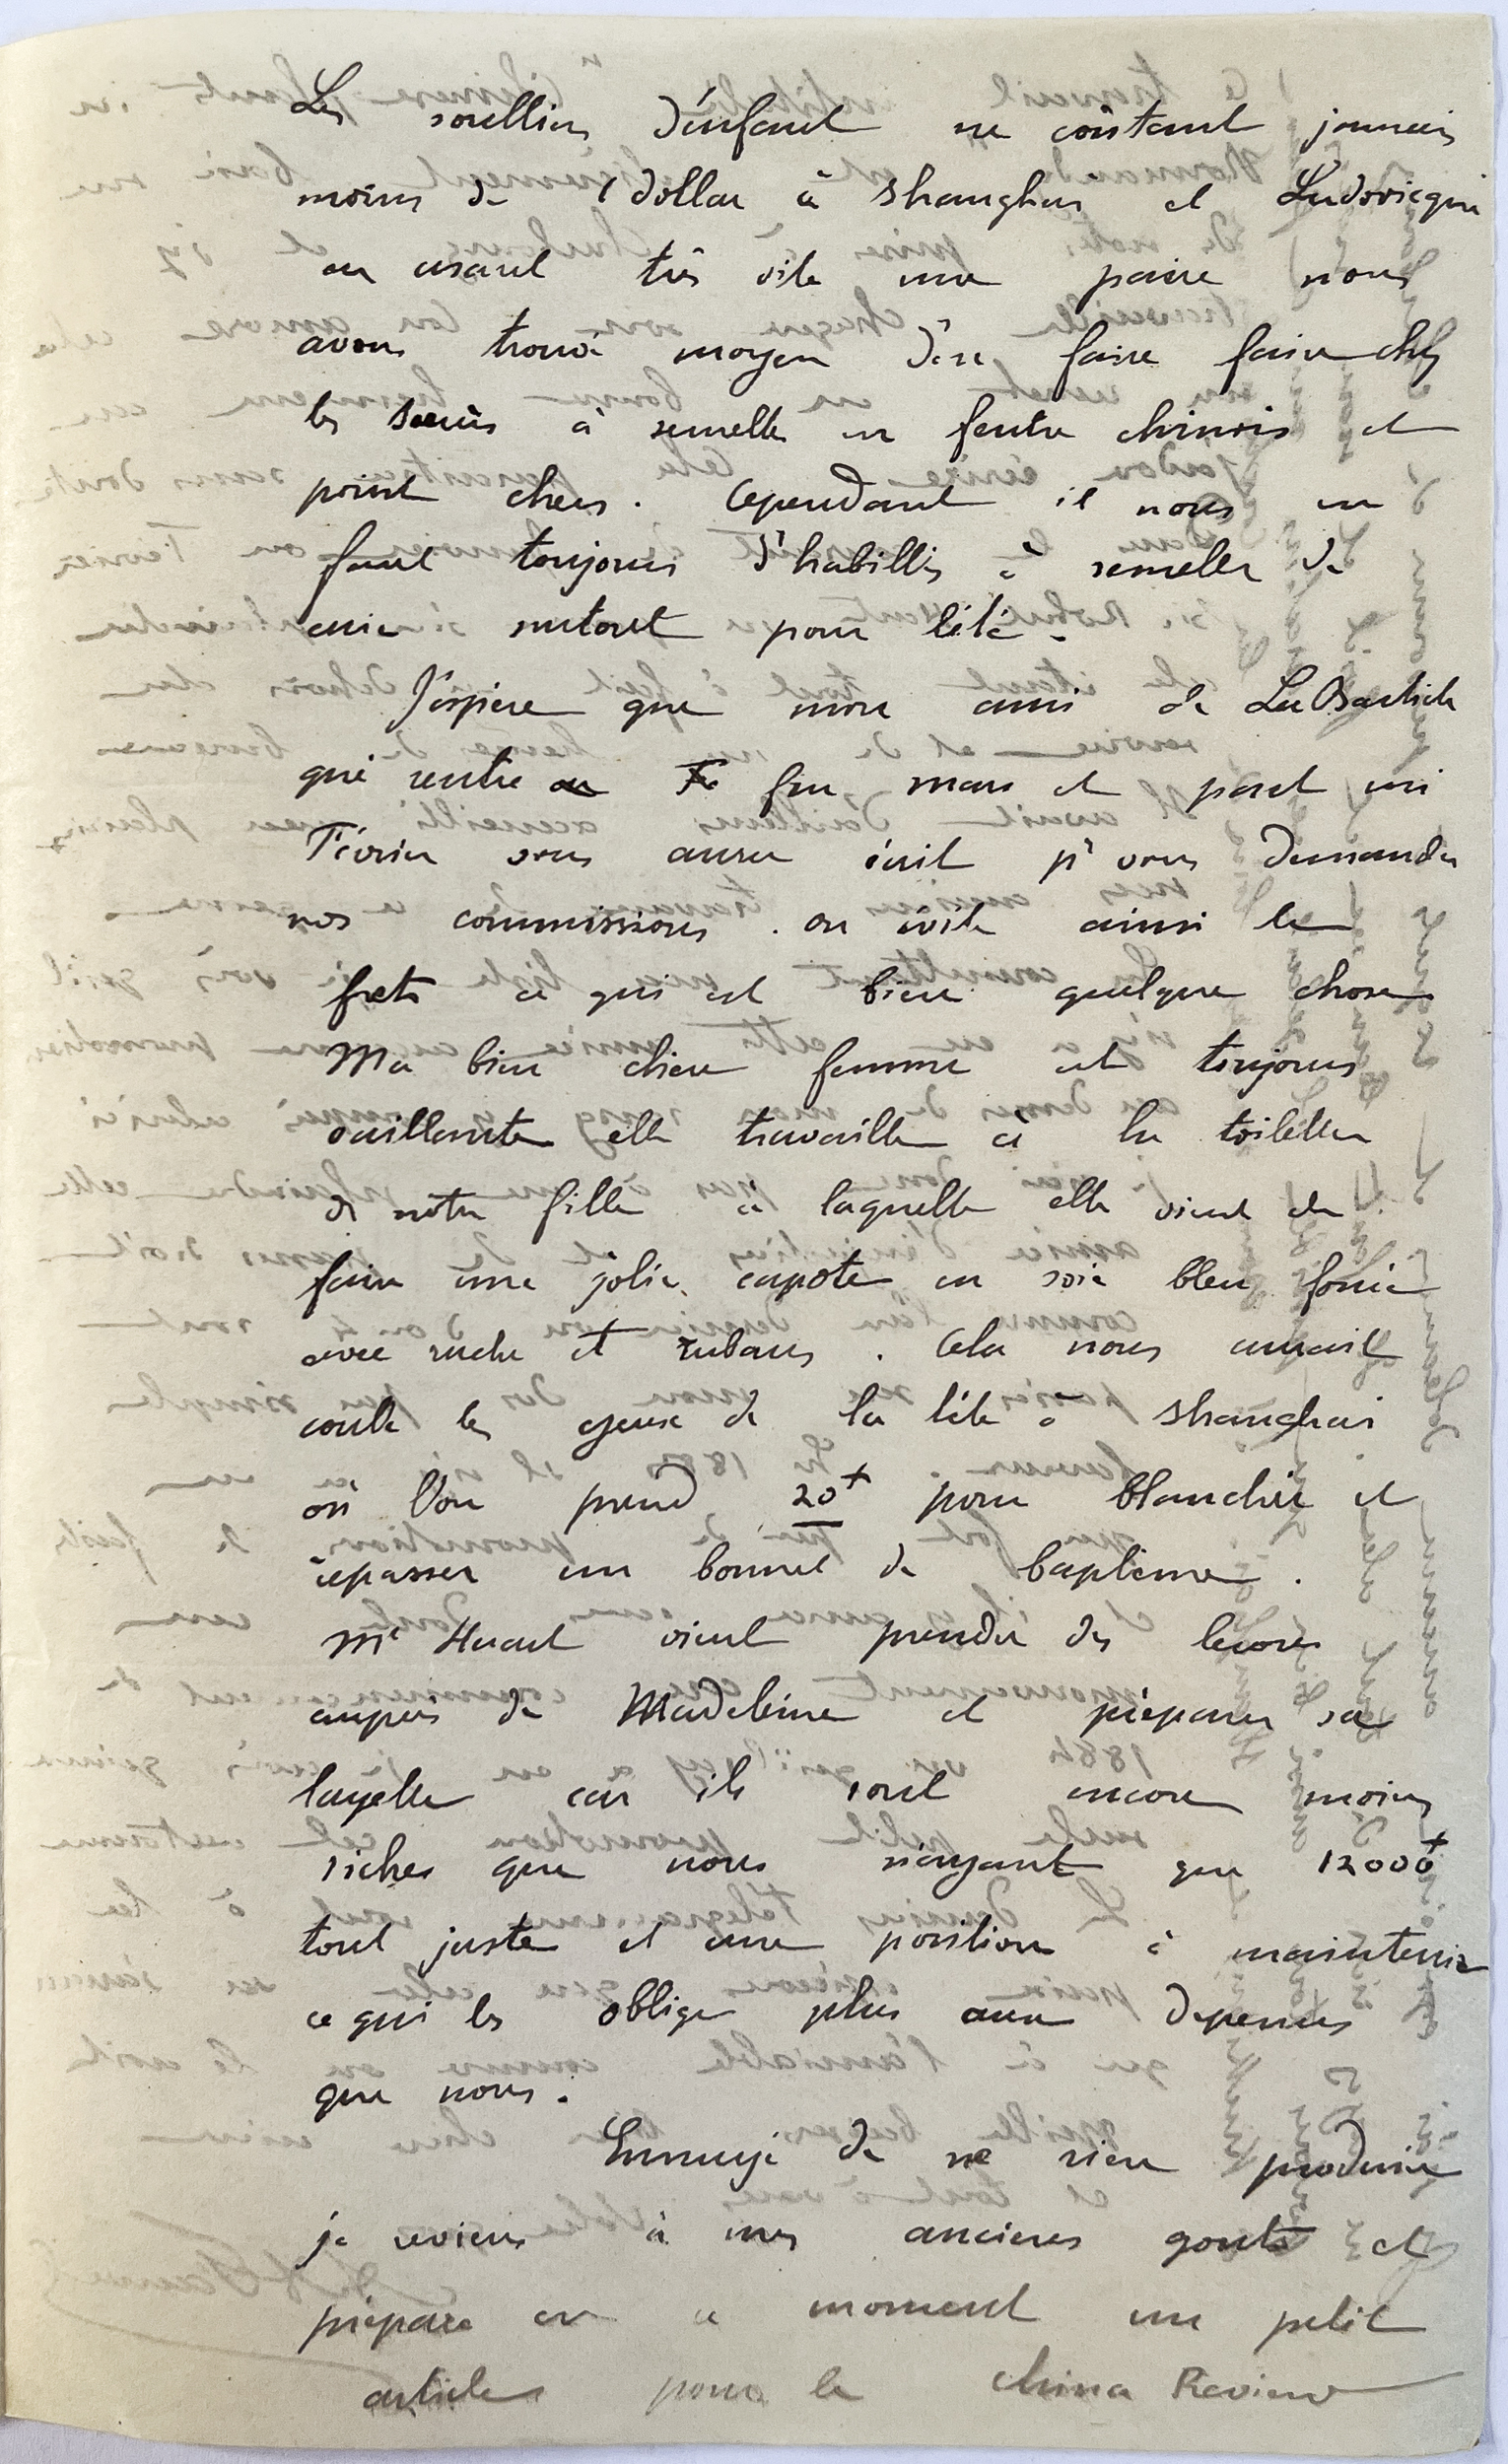 Les souliers d'enfant ne coûtant jamais
moins de 1 dollar à Shanghai et Ludovicque
en usant très vite une paire nous
avons trouvé moyen d'en faire faire chez
les Sœurs à semelles en feutre chinois et
point chers. Cependant il nous en
faut toujours d'habillés à semelle de
cuir surtout pour l'été.
J'espère que mon ami de La Bastide
qui rentre fin mars et part mi
Février vous aura écrit pr vous demander
nos commissions. on évite ainsi le
frets ce qui est bien quelque chose
Ma bien chère femme est toujours
vaillante elle travaille à la toilette
de notre fille à laquelle elle vient de
faire une jolie capote en soie bleu foncé
avec ruche et rubans. Cela nous aurait
coute les yeux de la tête à Shanghai
où l'on prend 20 pour blanchir et
repasser un bonnet de baptême.
Me Huart vient prendre des lecons
aupres de Madeleine et prépare sa
layette car ils sont encore moins
riches que nous n'ayant que 12000
tout juste et une position à maintenir
ce qui les oblige plus aux depenses
que nous.
Ennuyé de ne rien produire
je reviens à mes anciens gouts et
prépare en ce moment un petit
article pour le China Review